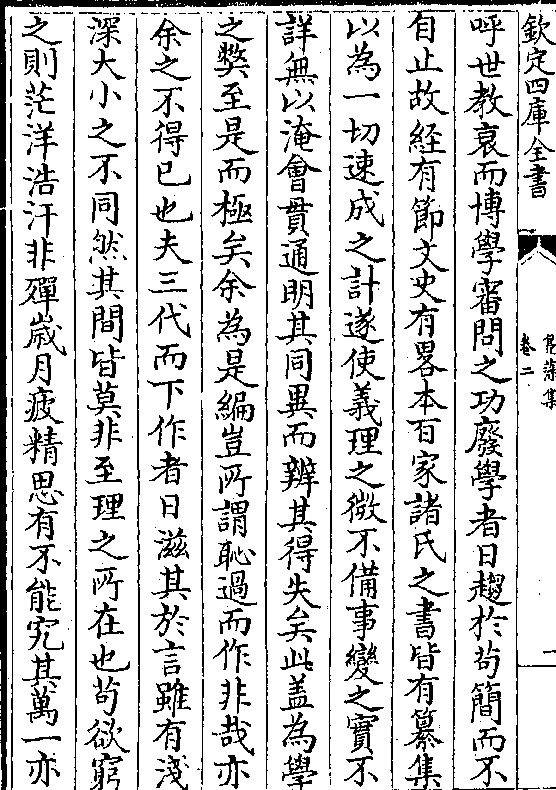 欽定四庫全書
卷二
呼世教衰而博學審問之功廢學者日趨於苟簡而不
自止故經有節文史有畧本百家諸氏之書皆有纂集
以為一切速成之計遂使義理之微不備事變之實不
詳無以淹會貫通明其同異而辨其得失矣此盖為學
之獘至是而極矣余為是編豈所謂恥過而作非哉亦
余之不得已也夫三代而下作者日滋其於言雖有淺
深大小之不同然其間皆莫非至理之所在也苟欲窮
之則茫洋浩汗非殫歲月疲精思有不能究其萬一亦